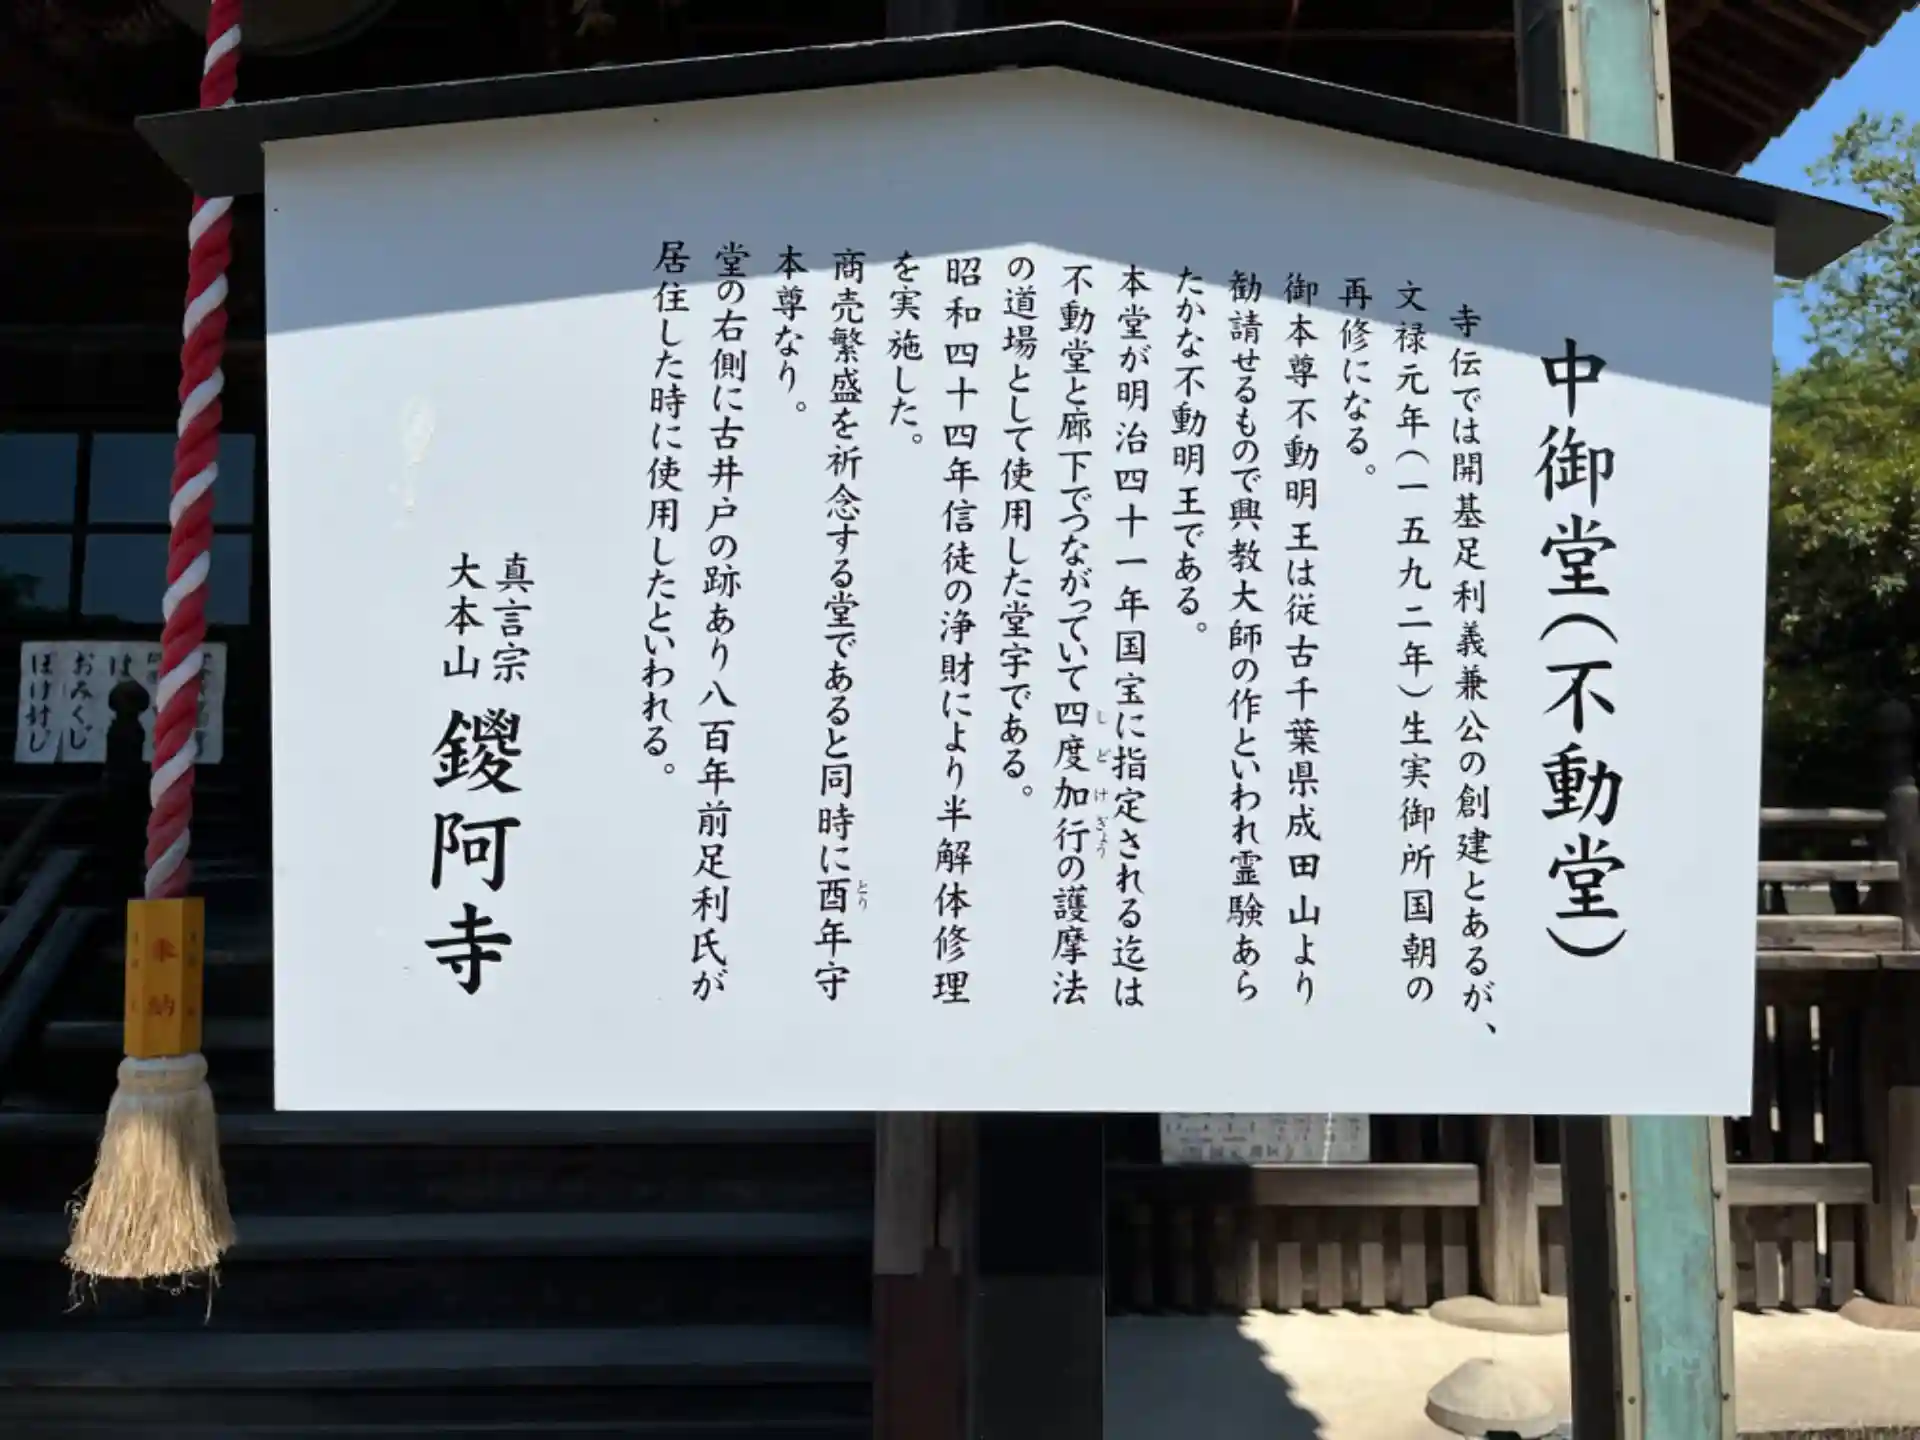 中御堂(不動堂)
寺伝では開基足利義兼公の創建とあるが、
文禄元年(一五九二年)生実御所国朝の
再修になる。
御本尊不動明王は従古千葉県成田山より
勧請せるもので興教大師の作といわれ霊験あら
たかな不動明王である。
本堂が明治四十一年国宝に指定される迄は
不動堂と廊下でつながっていて四度加行の護摩法
しどけぎょう
の道場として使用した堂宇である。
昭和四十四年信徒の浄財により半解体修理
を実施した。
商売繁盛を祈念する堂であると同時に酉年守
とり
本尊なり。
堂の右側に古井戸の跡あり八百年前足利氏が
居住した時に使用したといわれる。
真言宗
大本山
鑁阿寺
奉納
おみくじ
ぼけ封じ